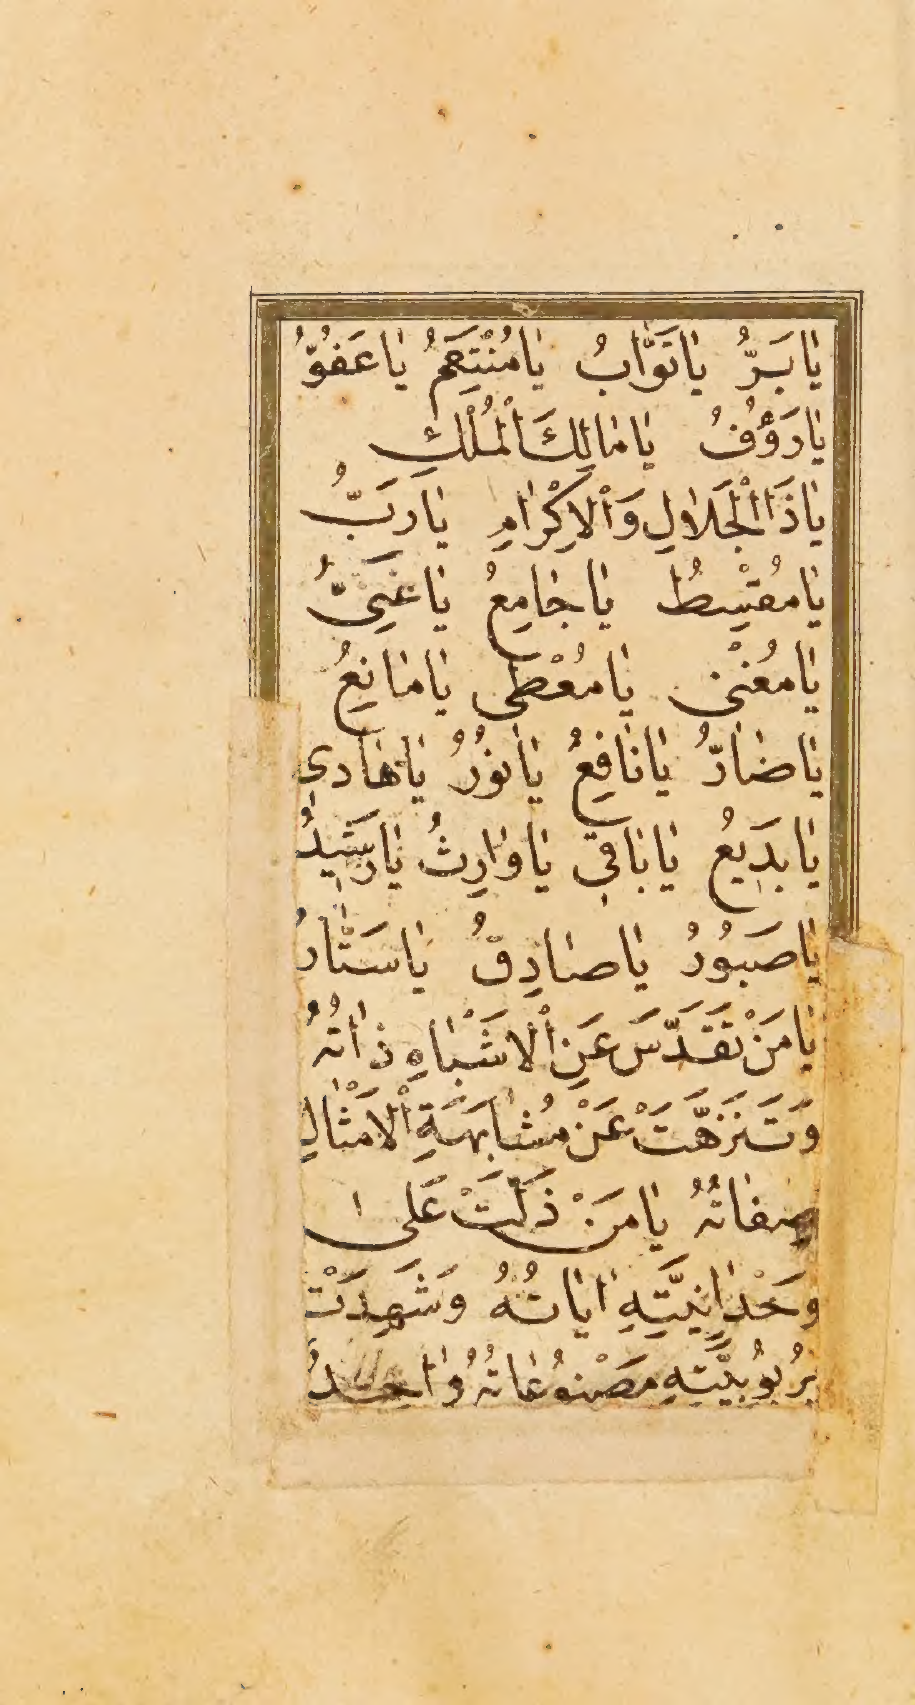 يَا بَرُّ يَا تَوَّابُ يَا مُنْتَقِمُ يَا عَفُوُّ
يَا رَؤُفُ يَا مَالِكَ الْمُلْكِ
يَا ذَا الْجَلَالِ وَالْاِكْرَامِ يَا رَبُّ
يَا مُقْسِطُ يَا جَامِعُ يَا غَنِىُّ
يَا مُغْنِى يَا مُعْطِى يَا مَانِعُ
يَا ضَارُّ يَا نَافِعُ يَا نُورُ يَا هَادِى
يَا بَدِيعُ يَا بَاقِى يَا وَارِثُ يَا رَشِيدُ
يَا صَبُورُ يَا صَادِقُ يَا سَتَّارُ
يَا مَنْ تَقَدَّسَ عَنِ الْاَشْبَاهِ ذَاتُهُ
وَتَنَزَّهَتْ عَنْ مُشَابَهَةِ الْاَمْثَالِ
صِفَاتُهُ يَا مَنْ دَلَّتْ عَلَى
وَحْدَانِيَّتِهِ اٰيَاتُهُ وَشَهِدَتْ
بِرُبُوبِيَّتِهِ مَصْنُوعَاتُهُ وَاحِدُ